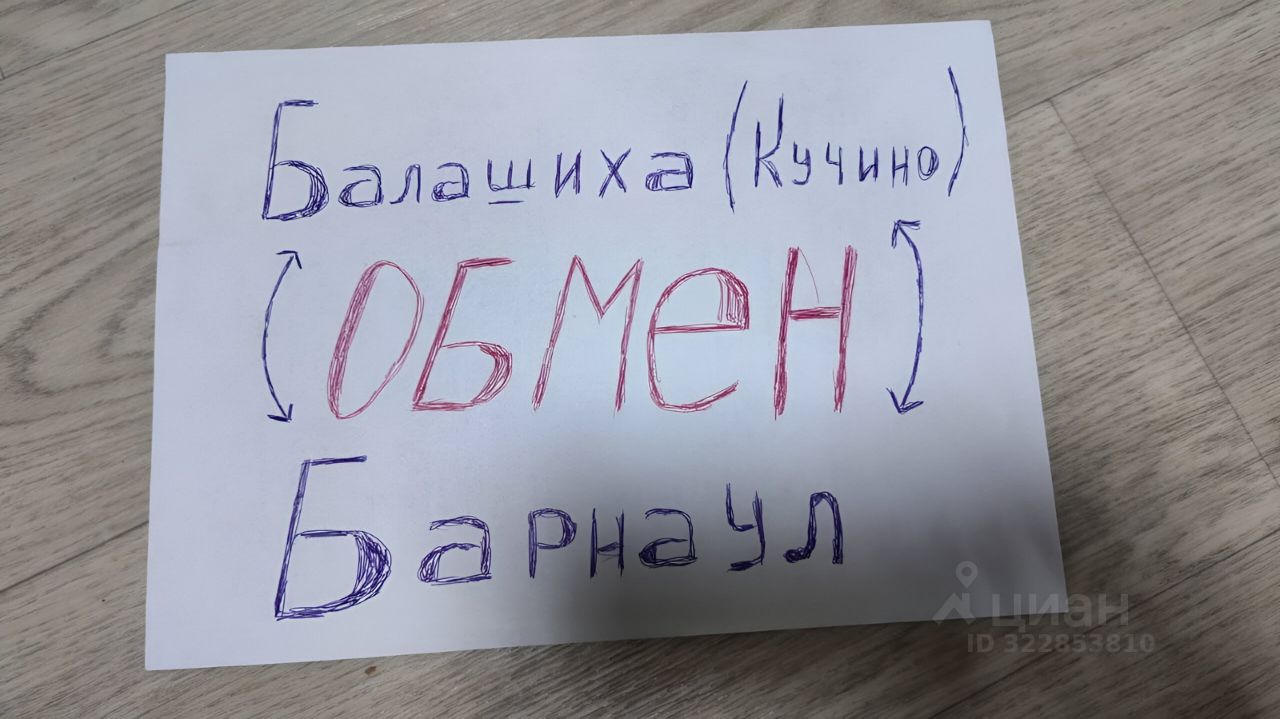 Балашиха (Кучино)
ОБМеН
Барнаул
циан
ID 322853810